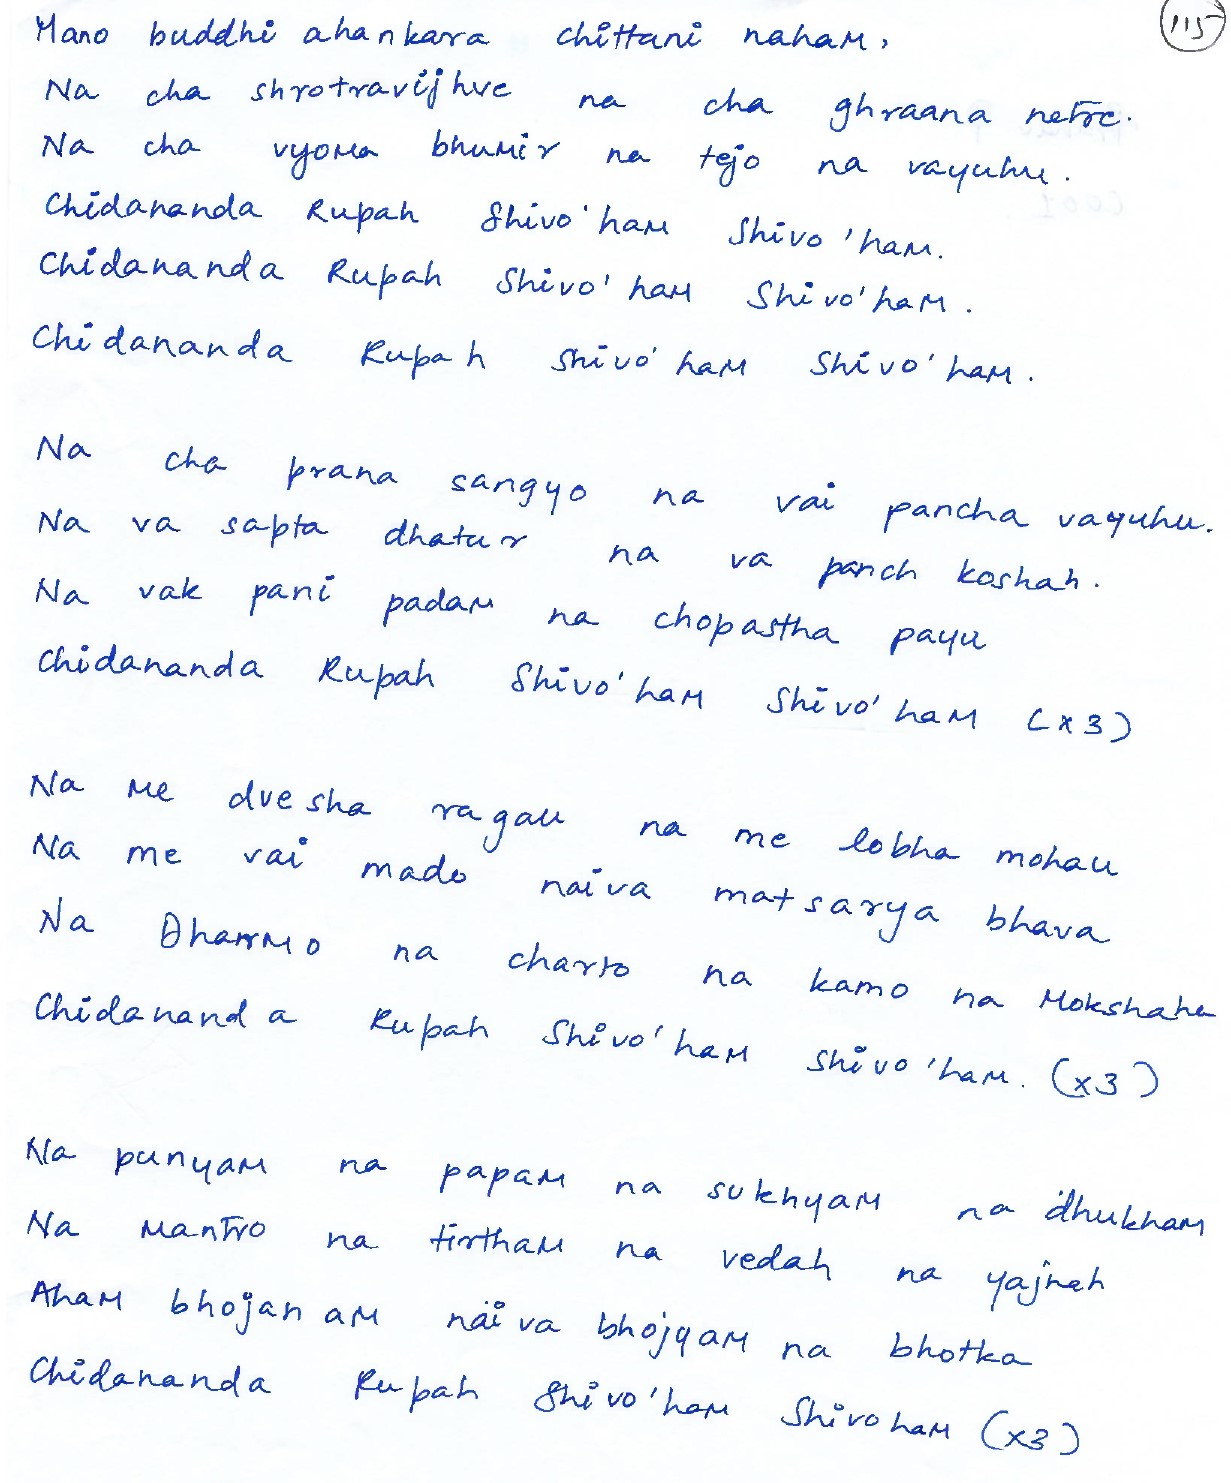 115
Mano buddhi ahankara chittani naham,
Na cha shrotravijhve na cha ghraana netre.
Na cha vyoma bhumir na tejo na vayuhu.
Chidananda Rupah Shivo'ham Shivo'ham.
Chidananda Rupah Shivo'ham Shivo'ham.
Chidananda Rupah Shivo'ham Shivo'ham.
Na cha prana sangyo na vai pancha vayuhu.
Na va sapta dhatur na va panch koshah.
Na vak pani padam na chopastha payu
Chidananda Rupah Shivo'ham Shivo'ham (x3)
Na me dvesha ragau na me lobha mohau
Na me vai mado naiva matsarya bhava
Na Dharmo na charto na kamo na Mokshaha
Chidananda Rupah Shivo'ham Shivo'ham. (x3)
Na punyam na papam na sukhyam na dhukham
Na mantro na tirtham na vedah na yajneh
Aham bhojanam naiva bhojyam na bhotka
Chidananda Rupah Shivo'ham Shivoham (x3)